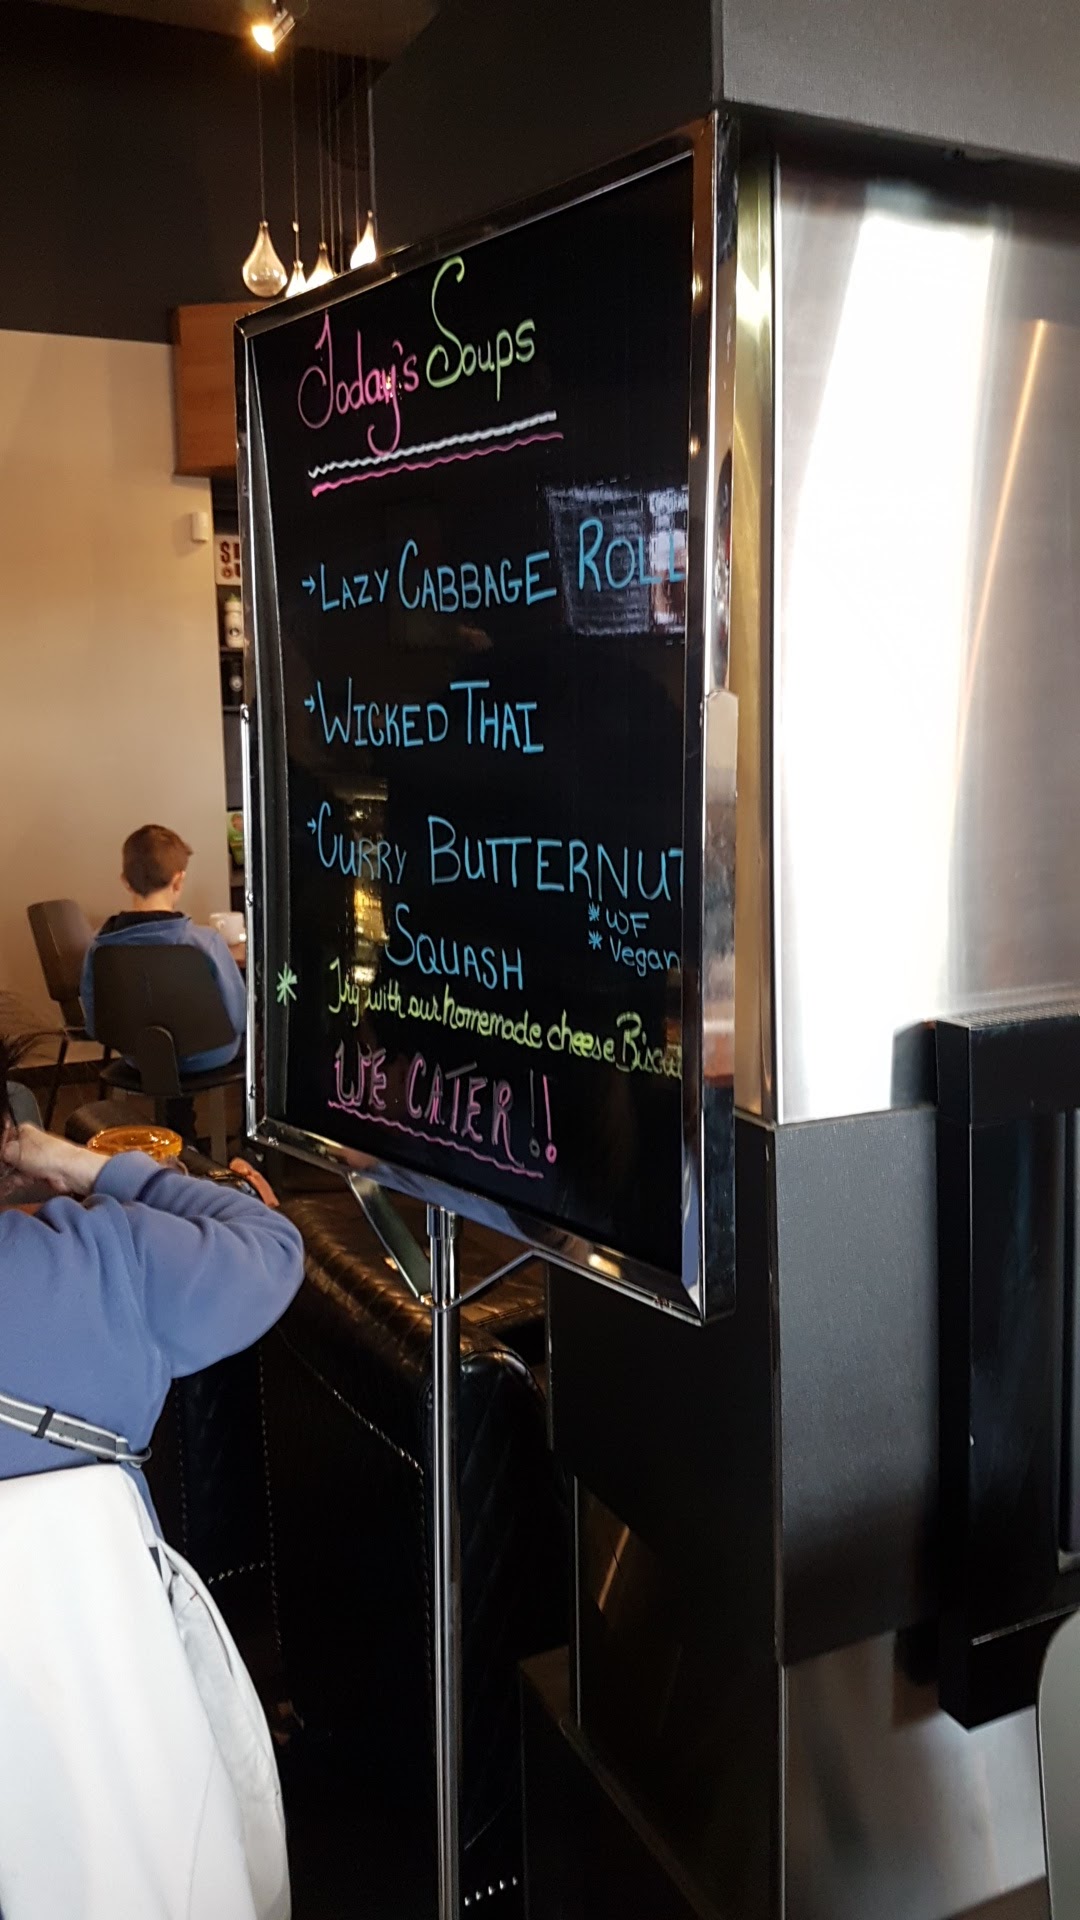 Today's Soups
→ LAZY CABBAGE ROLL
→ WICKED THAI
→ CURRY BUTTERNUT
SQUASH
* WF
* Vegan
* Try with our homemade cheese
WE CATER!!